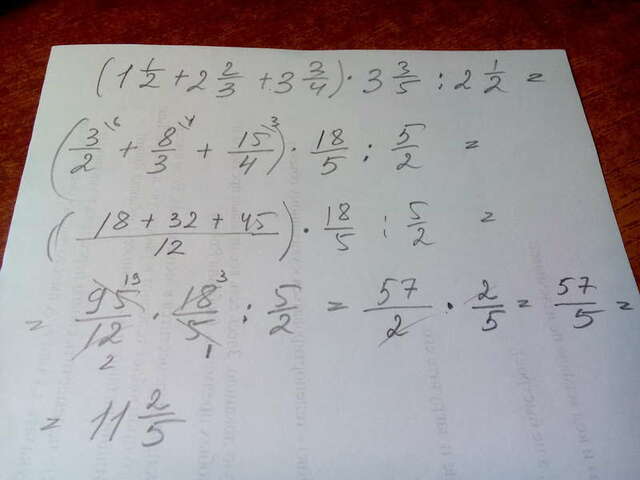 (1 1/2 + 2 2/3 + 3 3/4) · 3 3/5 : 2 1/2 =
(3/2 \6 + 8/3 \4 + 15/4 \3) · 18/5 : 5/2 =
((18 + 32 + 45)/12) · 18/5 : 5/2 =
= 95 19/12 2 · 18 3/5 1 : 5/2 = 57/2 · 2/5 = 57/5 =
= 11 2/5